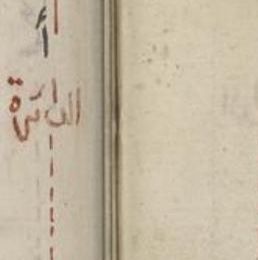 أ
الدائرة